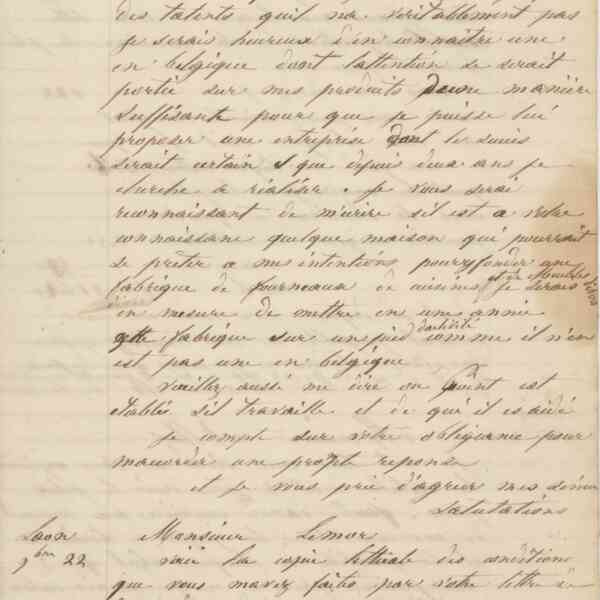 des talents qu'il na veritablement pas
je serais heureux d'en connaitre une
en belgique dont l'attention se serait
portée sur mes produits d'une manière
suffisante pour que je puisse lui
proposer une entreprise dont le succès
serait certain et que depuis deux ans je
cherche a réaliser. je vous serai
reconnaissant de m'ecrire s'il est a votre
connaissance quelque maison qui pourrait
se prêter a mes intentions pour y fonder une
fabrique de fourneaux de cuisines et de meubles je serais
en mesure de mettre en une année
cette fabrique sur un pied d'activité comme il n'en
est pas une en belgique
veuillez aussi me dire ou est
établi s'il travaille et de qui il est aidé
je compte sur votre obligeance pour
une prompte reponse
et je vous prie d'agréer mes
salutations
Laon Monsieur Lemor
9bre 22 voici la copie littérale des conditions
que vous mavez faites par votre lettre